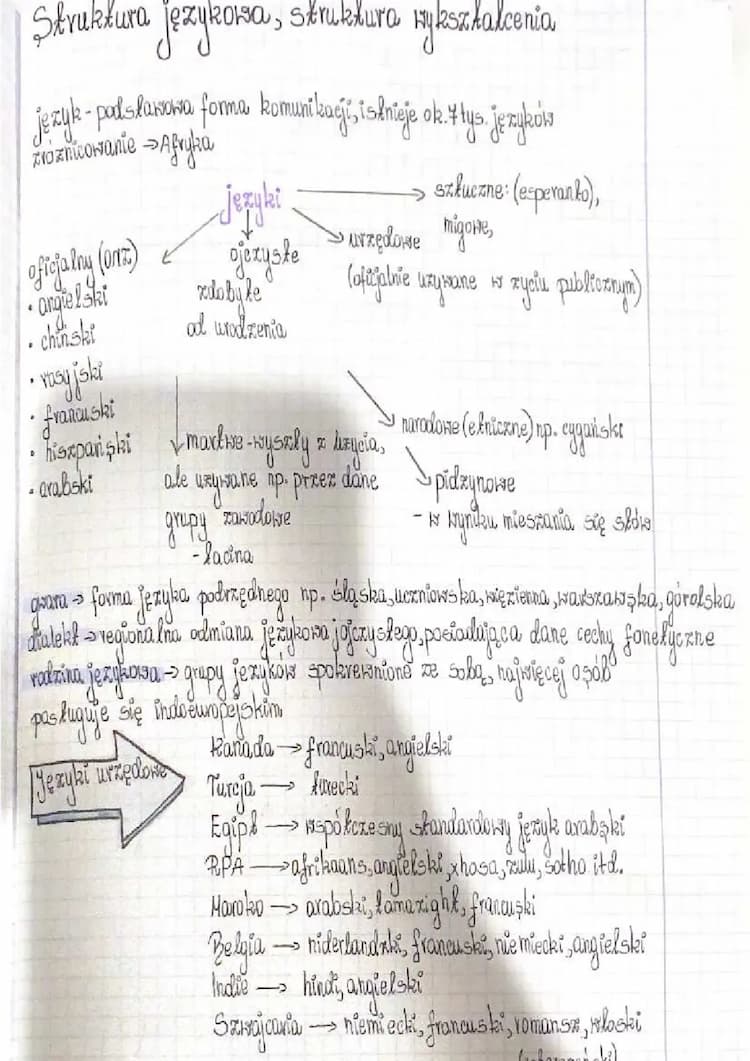 Struktura językowa, struktura wykształcenia
język - podstawowa forma komunikacji, istnieje ok. 7 tys. języków
zróżnicowanie → Afryka
języki
sztuczne: (esperanto),
migowe,
urzędowe
(oficjalnie używane w życiu publicznym)
ojczyste
zdobyte
od urodzenia
oficjalny (ONZ)
• angielski
• chiński
• rosyjski
• francuski
• hiszpański
• arabski
martwe - wyszły z użycia,
ale używane np. przez dane
grupy zawodowe
- łacina
narodowe (etniczne) np. cygański
pidżynowe
- w wyniku mieszania się słów
gwara → forma języka podrzędnego np. śląska, uczniowska, więzienna, warszawska, góralska
dialekt → regionalna odmiana językowa ojczystego, posiadająca dane cechy fonetyczne
rodzina językowa → grupy języków spokrewnione ze sobą, najwięcej osób
posługuje się indoeuropejskim
Języki urzędowe
Kanada → francuski, angielski
Turcja → turecki
Egipt → współczesny standardowy język arabski
RPA → afrikaans, angielski, xhosa, zulu, sotho itd.
Maroko → arabski, tamazight, francuski
Belgia → niderlandzki, francuski, niemiecki, angielski
Indie → hindi, angielski
Szwajcaria → niemiecki, francuski, romansz, włoski